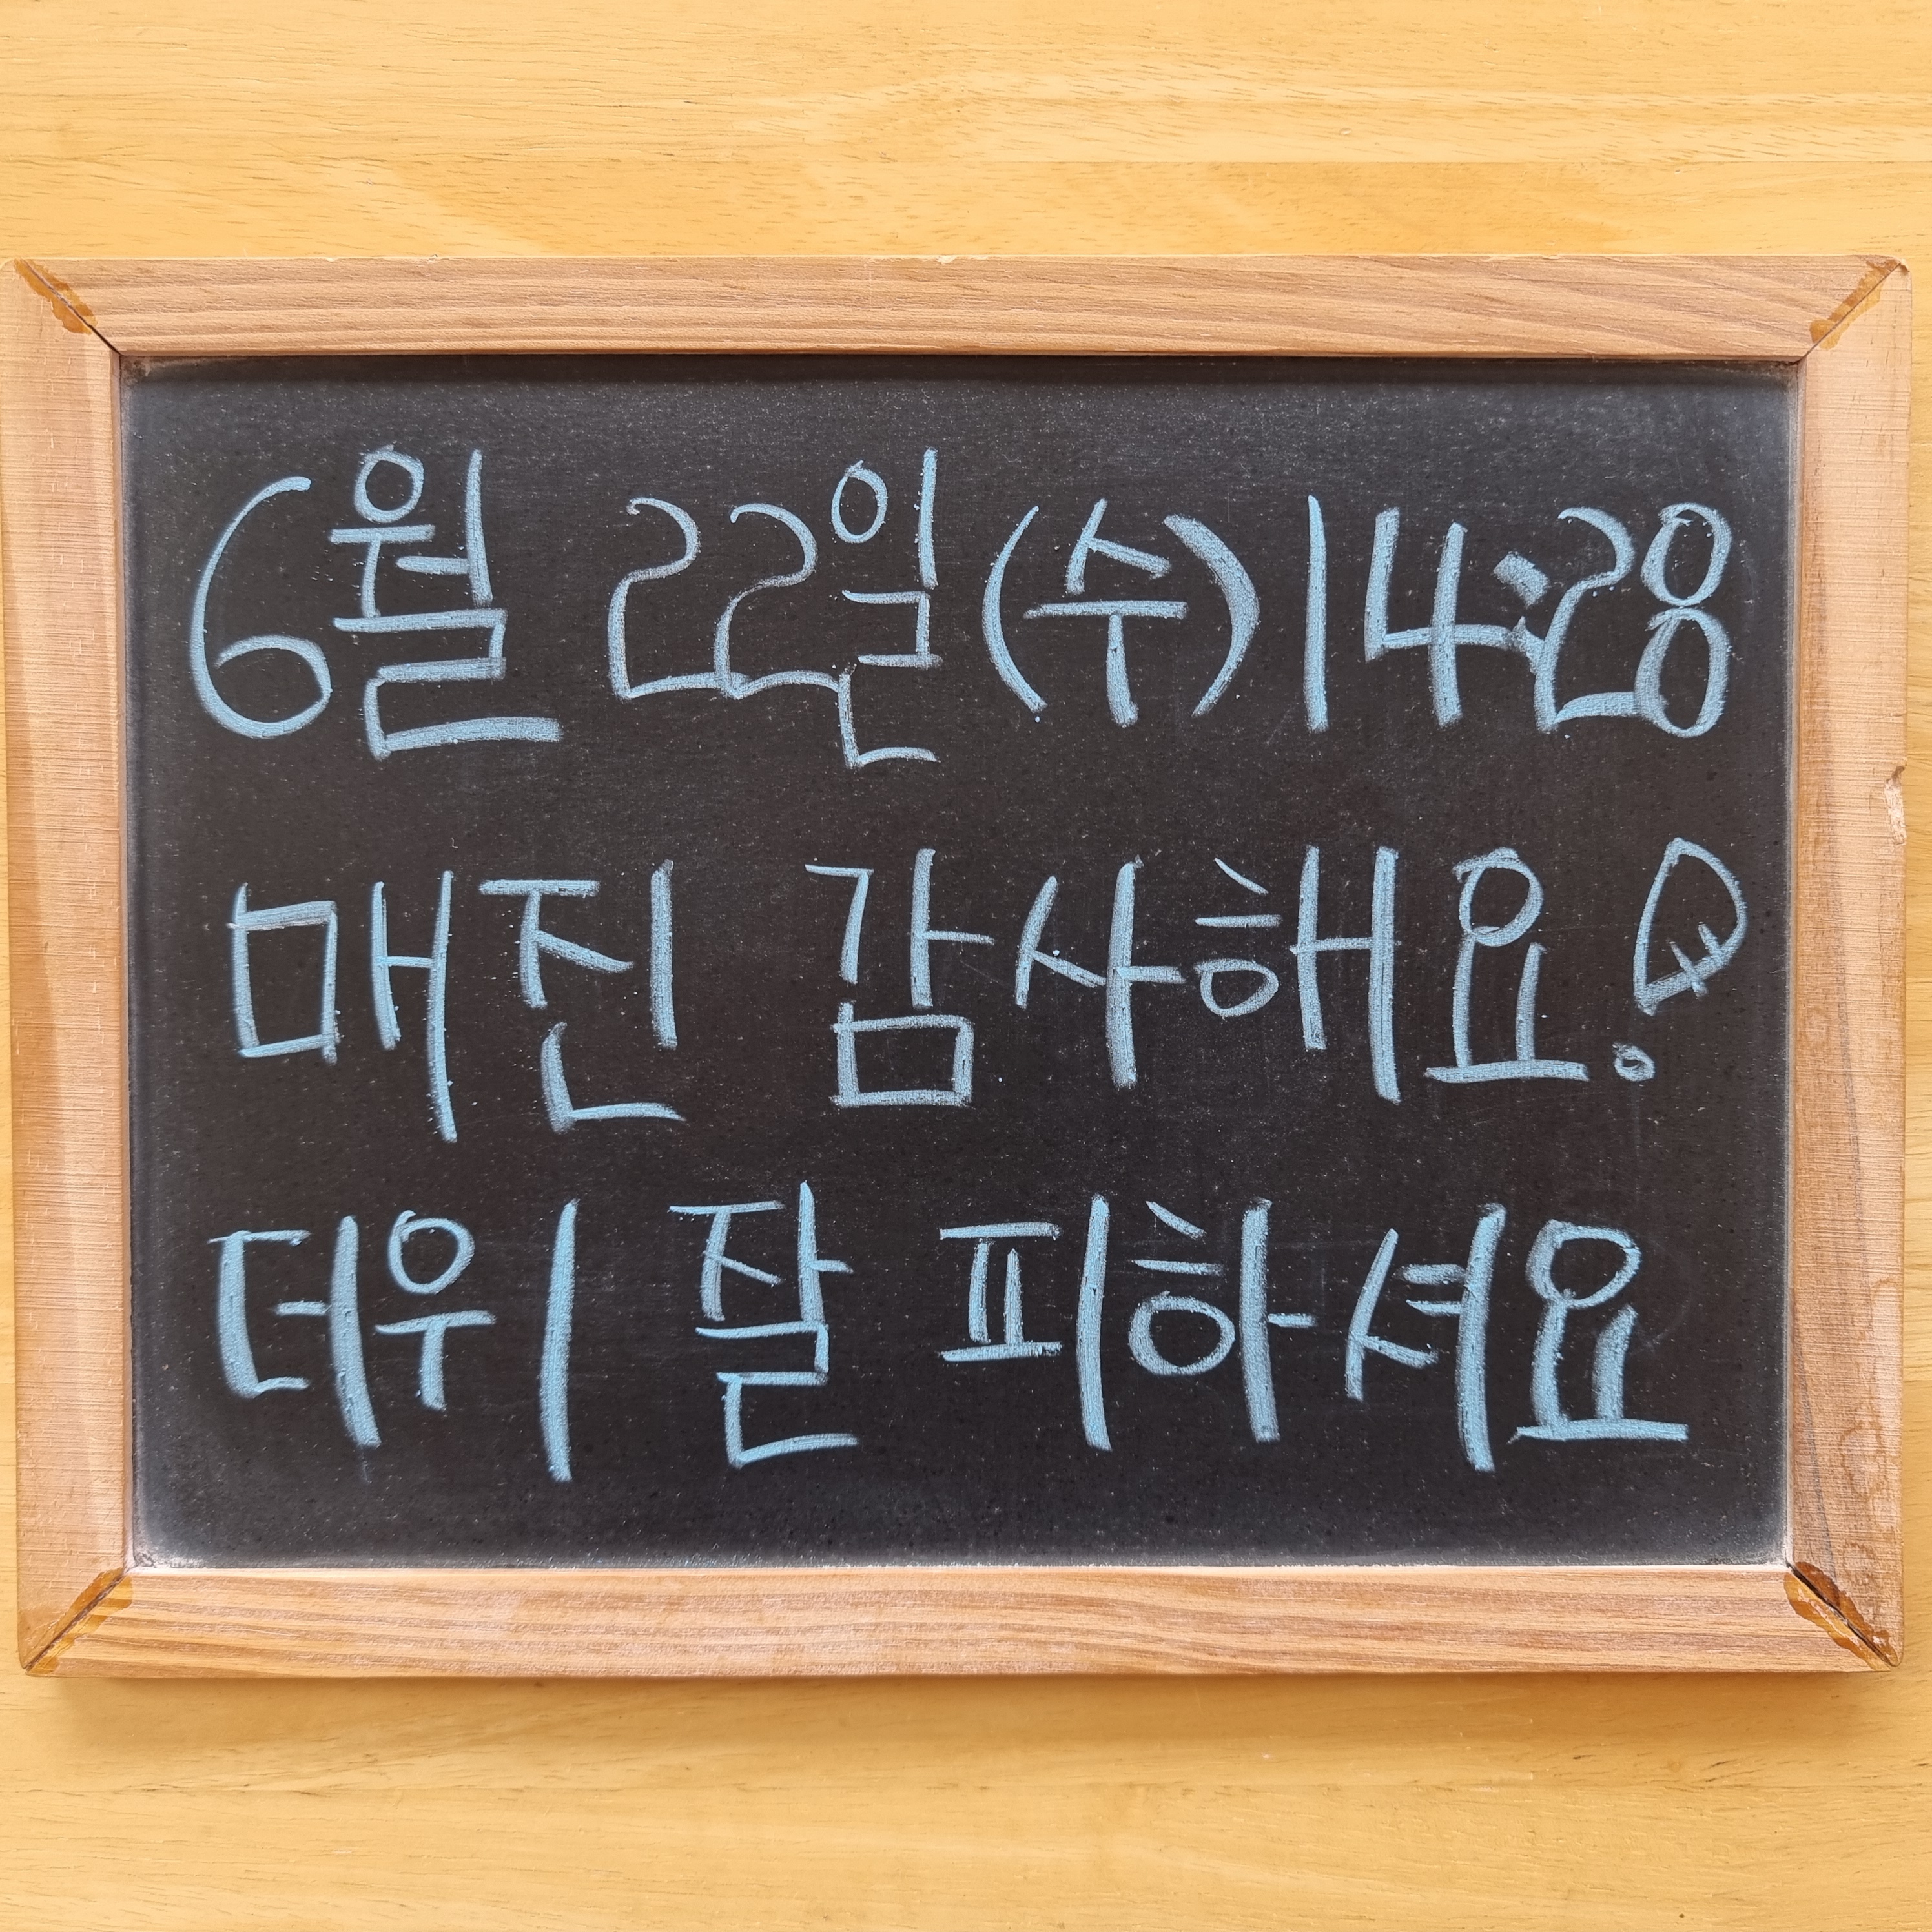 6월 22일(수) 14:28
매진 감사해요!
더위 잘 피하셔요